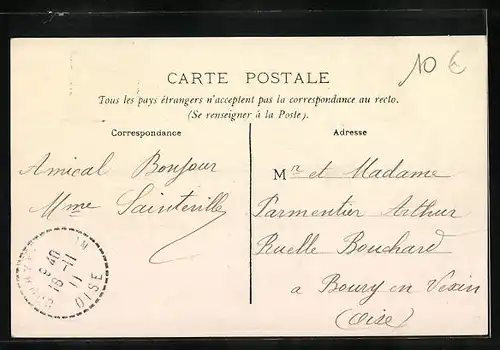 10 €
CARTE POSTALE
Tous les pays étrangers n'acceptent pas la correspondance au recto.
(Se renseigner à la Poste).
Correspondance
Adresse
Amical Bonjour
Mme Sainteville
Mr et Madame
Parmentier Arthur
Ruelle Bouchard
a Boury en Vexin
(Oise)
8 40
18 - 11
11
OISE